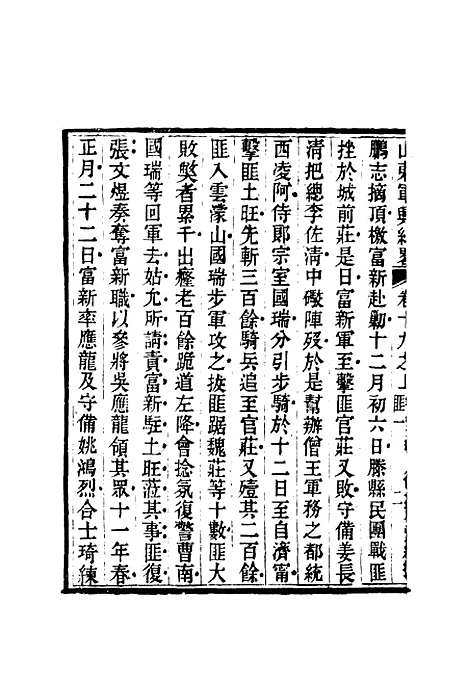 山東軍興紀畧 卷十九之上 匪一
鵬志摘頂檄富新赴勦十二月初六日滕縣民團戰匪
挫於城前莊是日富新軍至擊匪官莊又敗守備姜長
清把總李佐清中礮陣歿於是幫辦僧王軍務之都統
西凌阿侍郞宗室國瑞分引步騎於十二日至自濟甯
擊匪土旺先斬三百餘騎兵追至官莊又殪其二百餘
匪入雲濛山國瑞步軍攻之拔匪踞魏莊等十數匪大
敗斃者累千出瘞老百餘跪道左降會捻氛復警曹南
國瑞等回軍去姑允所請責富新駐土旺蒞其事匪復
張文煜奏奪富新職以參將吳應龍領其眾十一年春
正月二十二日富新率應龍及守備姚鴻烈合士琦練